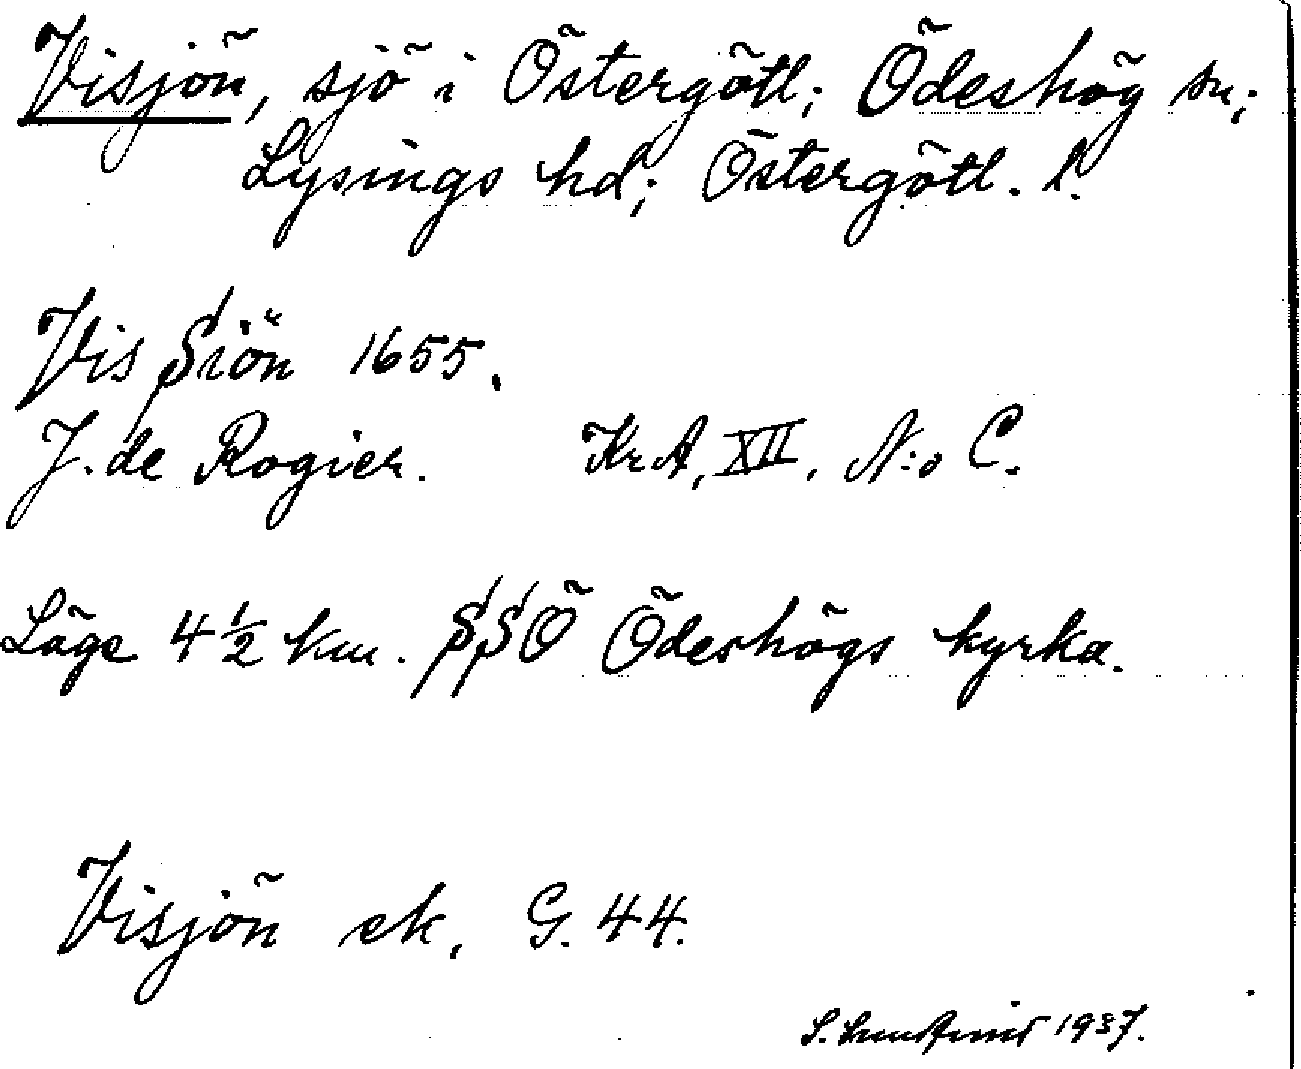 Visjön, sjö i Östergötl; Ödeshög sn;
Lysings hd; Östergötl. l.
Vis Siön 1655.
J. de Rogier. KrA, XII. N:o C.
Läge 4 1/2 km. SSÖ Ödeshögs kyrka.
Visjön ek. G. 44.
S. 1937.